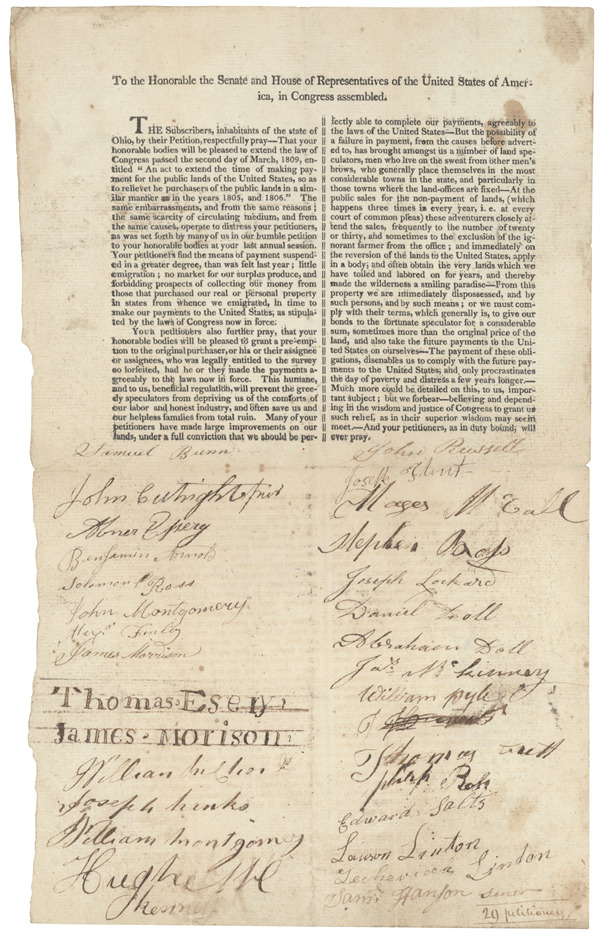 To the Honorable the Senate and House of Representatives of the United States of Amer-
ica, in Congress assembled.
THE Subscribers, inhabitants of the state of
Ohio, by their Petition, respectfully pray—That your
honorable bodies will be pleased to extend the law of
Congress passed the second day of March, 1809, en-
titled "An act to extend the time of making pay-
ment for the public lands of the United States, so as
to relieve the purchasers of the public lands in a sim-
ilar manner as in the years 1805, and 1806." The
same embarrassments, and from the same reasons;
the same scarcity of circulating medium, and from
the same causes, operate to distress your petitioners,
as was set forth by many of us in our humble petition
to your honorable bodies at your last annual session.
Your petitioners find the means of payment suspend-
ed in a greater degree, than was felt last year; little
emigration; no market for our surplus produce, and
forbidding prospects of collecting our money from
those that purchased our real or personal property
in states from whence we emigrated, in time to
make our payments to the United States, as stipula-
ted by the laws of Congress now in force.
Your petitioners also further pray, that your
honorable bodies will be pleased to grant a pre-emp-
tion to the original purchaser, or his or their assignee
or assignees, who was legally entitled to the survey
so forfeited, had he or they made the payments a-
greeably to the laws now in force. This humane,
and to us, beneficial regulation, will prevent the gree-
dy speculators from depriving us of the comforts of
our labor and honest industry, and often save us and
our helpless families from total ruin. Many of your
petitioners have made large improvements on our
lands, under a full conviction that we should be per-
fectly able to complete our payments, agreeably to
the laws of the United States—But the possibility of
a failure in payment, from the causes before advert-
ed to, has brought amongst us a number of land spe-
culators, men who live on the sweat from other men's
brows, who generally place themselves in the most
considerable towns in the state, and particularly in
those towns where the land-offices are fixed—At the
public sales for the non-payment of lands, (which
happens three times in every year, i. e. at every
court of common pleas) these adventurers closely at-
tend the sales, frequently to the number of twenty
or thirty, and sometimes to the exclusion of the ig-
norant farmer from the office; and immediately on
the reversion of the lands to the United States, apply
in a body; and often obtain the very lands which we
have toiled and labored on for years, and thereby
made the wilderness a smiling paradise—From this
property we are immediately dispossessed, and by
such persons, and by such means; or we must com-
ply with their terms, which generally is, to give our
bonds to the fortunate speculator for a considerable
sum, sometimes more than the original price of the
land, and also take the future payments to the Uni-
ted States on ourselves—The payment of these obli-
gations, disenables us to comply with the future pay-
ments to the United States; and only procrastinates
the day of poverty and distress a few years longer.—
Much more could be detailed on this, to us, impor-
tant subject; but we forbear—believing and depend-
ing in the wisdom and justice of Congress to grant us
such relief, as in their superior wisdom may seem
meet.—And your petitioners, as in duty bound, will
ever pray.
Samuel Bunn
John Cutright
Abner
Benjamin Arnold
Solomon Ross
John Montgomery
Finley
James Morrison
Thomas Esery
James Morison
William
Joseph hinks
William montgomery
Hugh
John Russell
Joseph
Mc Call
Stephen Ross
Joseph Lockard
Daniel Doll
Abraham Doll
Jas Mc Kinney
William pyle
Thomas
philip Ross
Edward Salts
Lawson Linton
Linton
Saml Hanson
29 petitioners